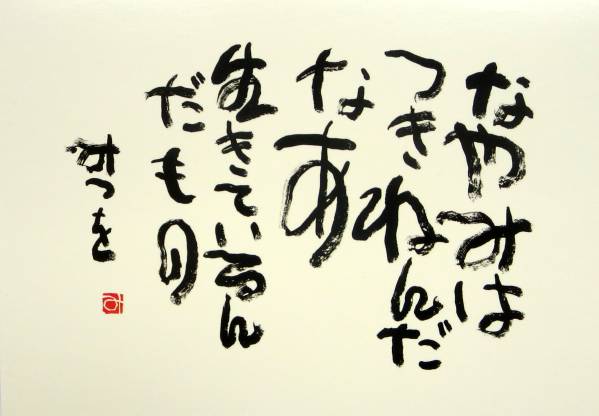 なやみは
つきねんだ
なあ
生きているん
だもの
みつを
み